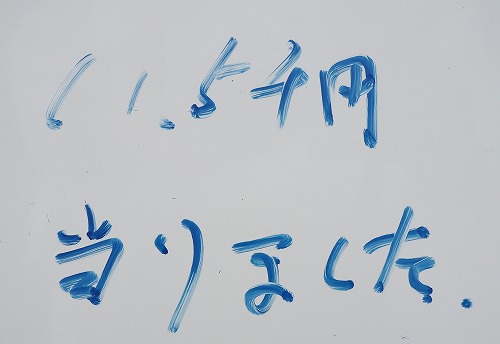 11.5千円
当りました.